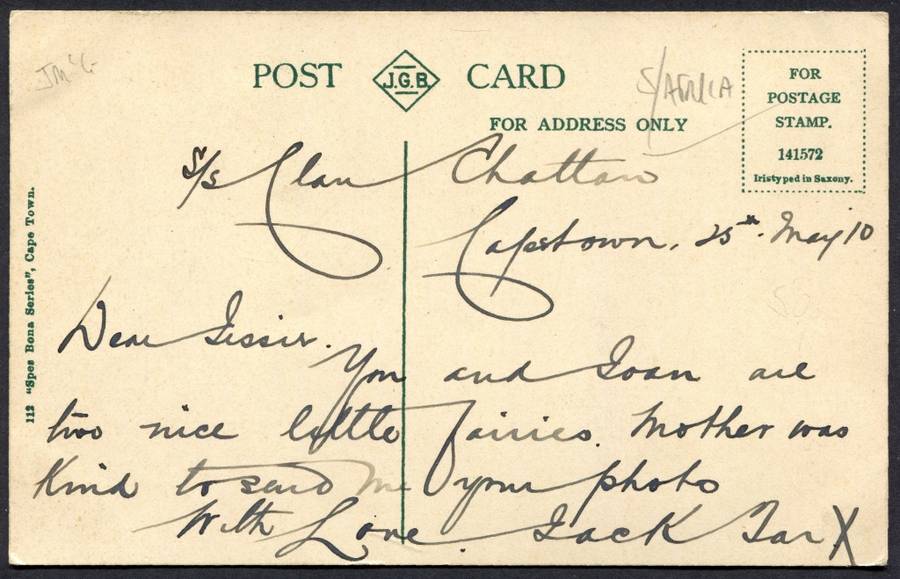 JMcG
POST J.G.B. CARD
S/AFRICA
FOR ADDRESS ONLY
FOR
POSTAGE
STAMP.
141572
Iristyped in Saxony.
112 "Spes Bona Series", Cape Town.
S/s Clan Chattan
Capetown. 25th. May 10
Dear Jessie.
You and Joan are
two nice little fairies. Mother was
Kind to send me your photo
With Love. Jack Tar X